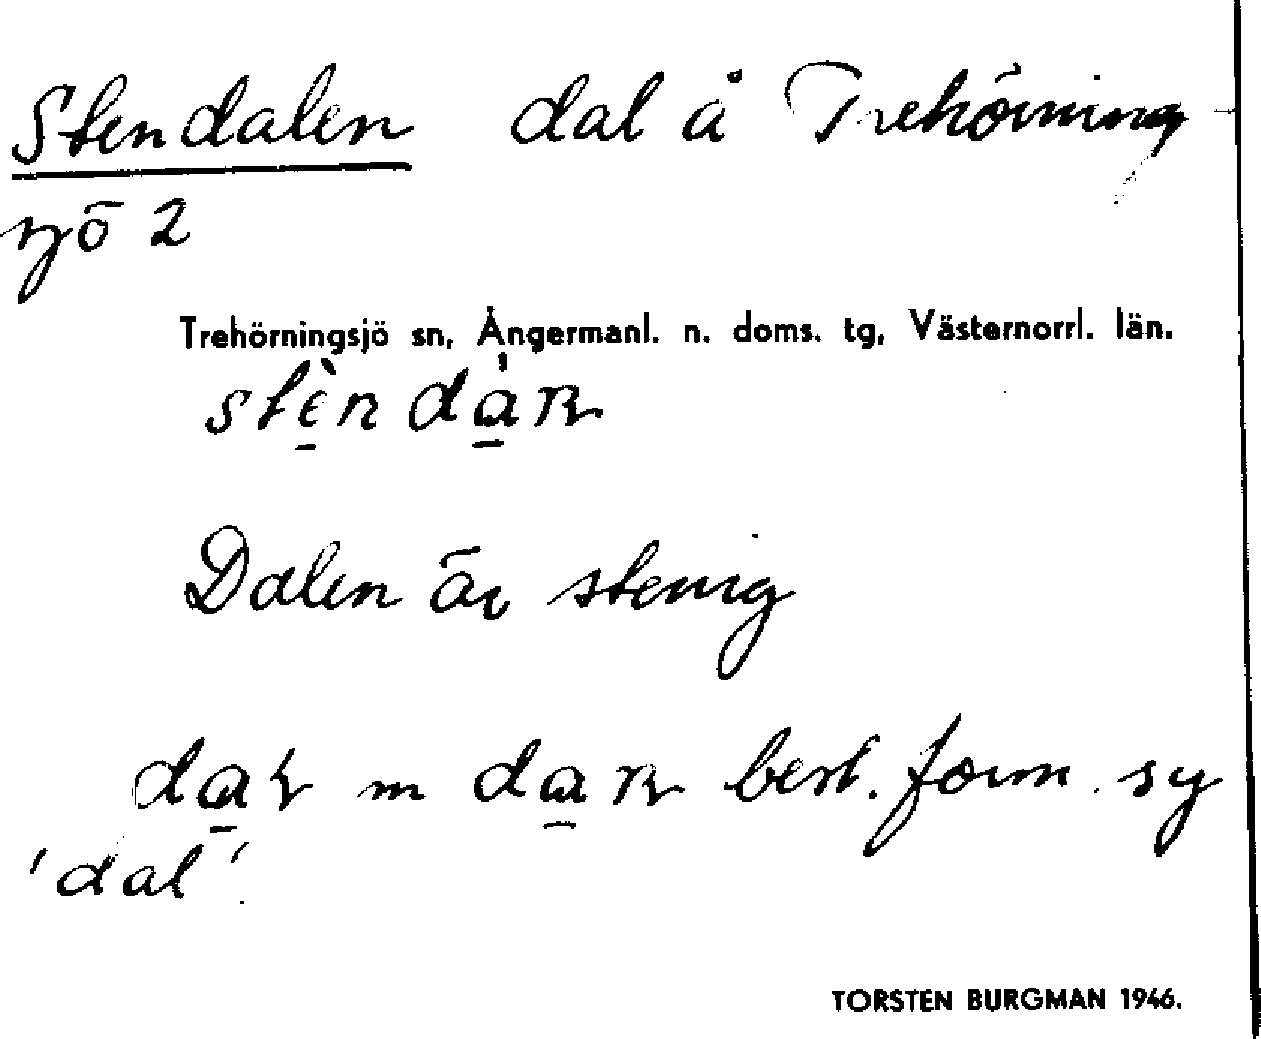 Stendalen dal å Trehörning
sjö 2
Trehörningsjö sn, Ångermanl. n. doms. tg, Västernorrl. län.
Dalen är stenig
m best. form. sg
'dal'.
TORSTEN BURGMAN 1946.